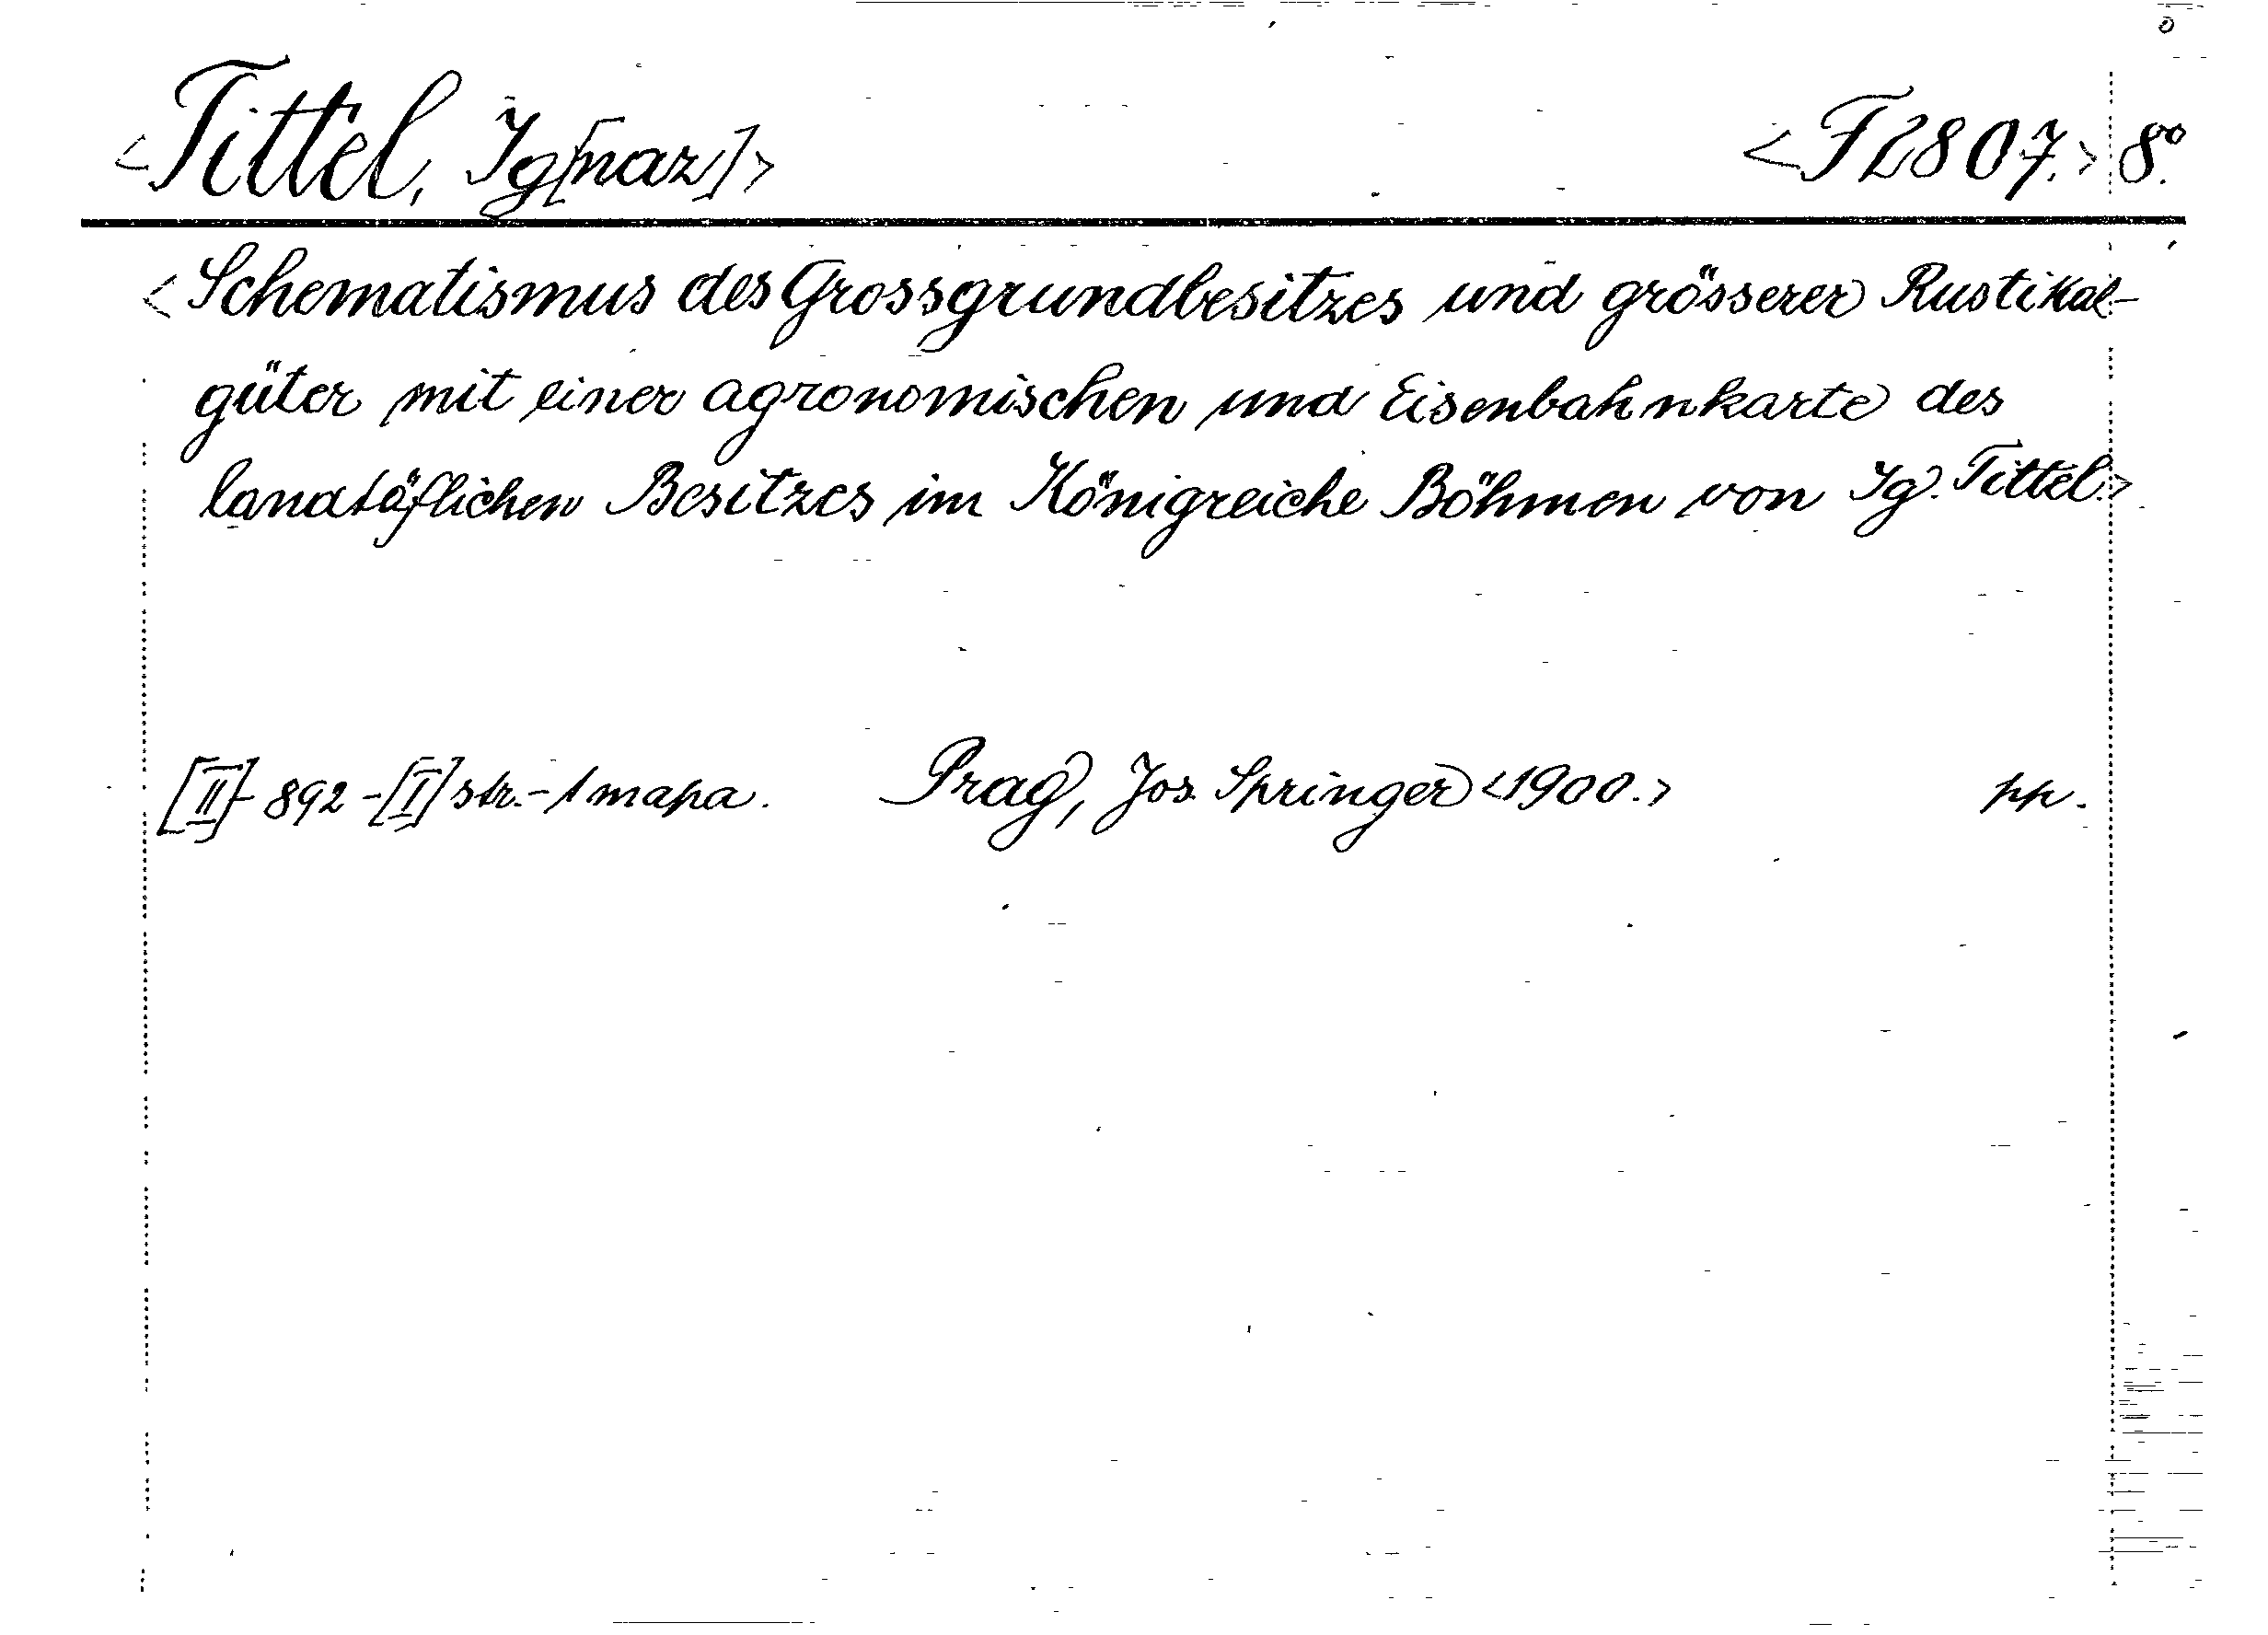 <Tittel, Ig[naz]> <F2807.> 8°.
<Schematismus des Grossgrundbesitzes und grösserer Rustikal-
güter mit einer agronomischen und Eisenbahnkarte des
landtäflichen Besitzes im Königreiche Böhmen von Ig. Tittel.>
[II]-892-[I] str.-1 mapa. Prag, Jos. Springer <1900.> pp.